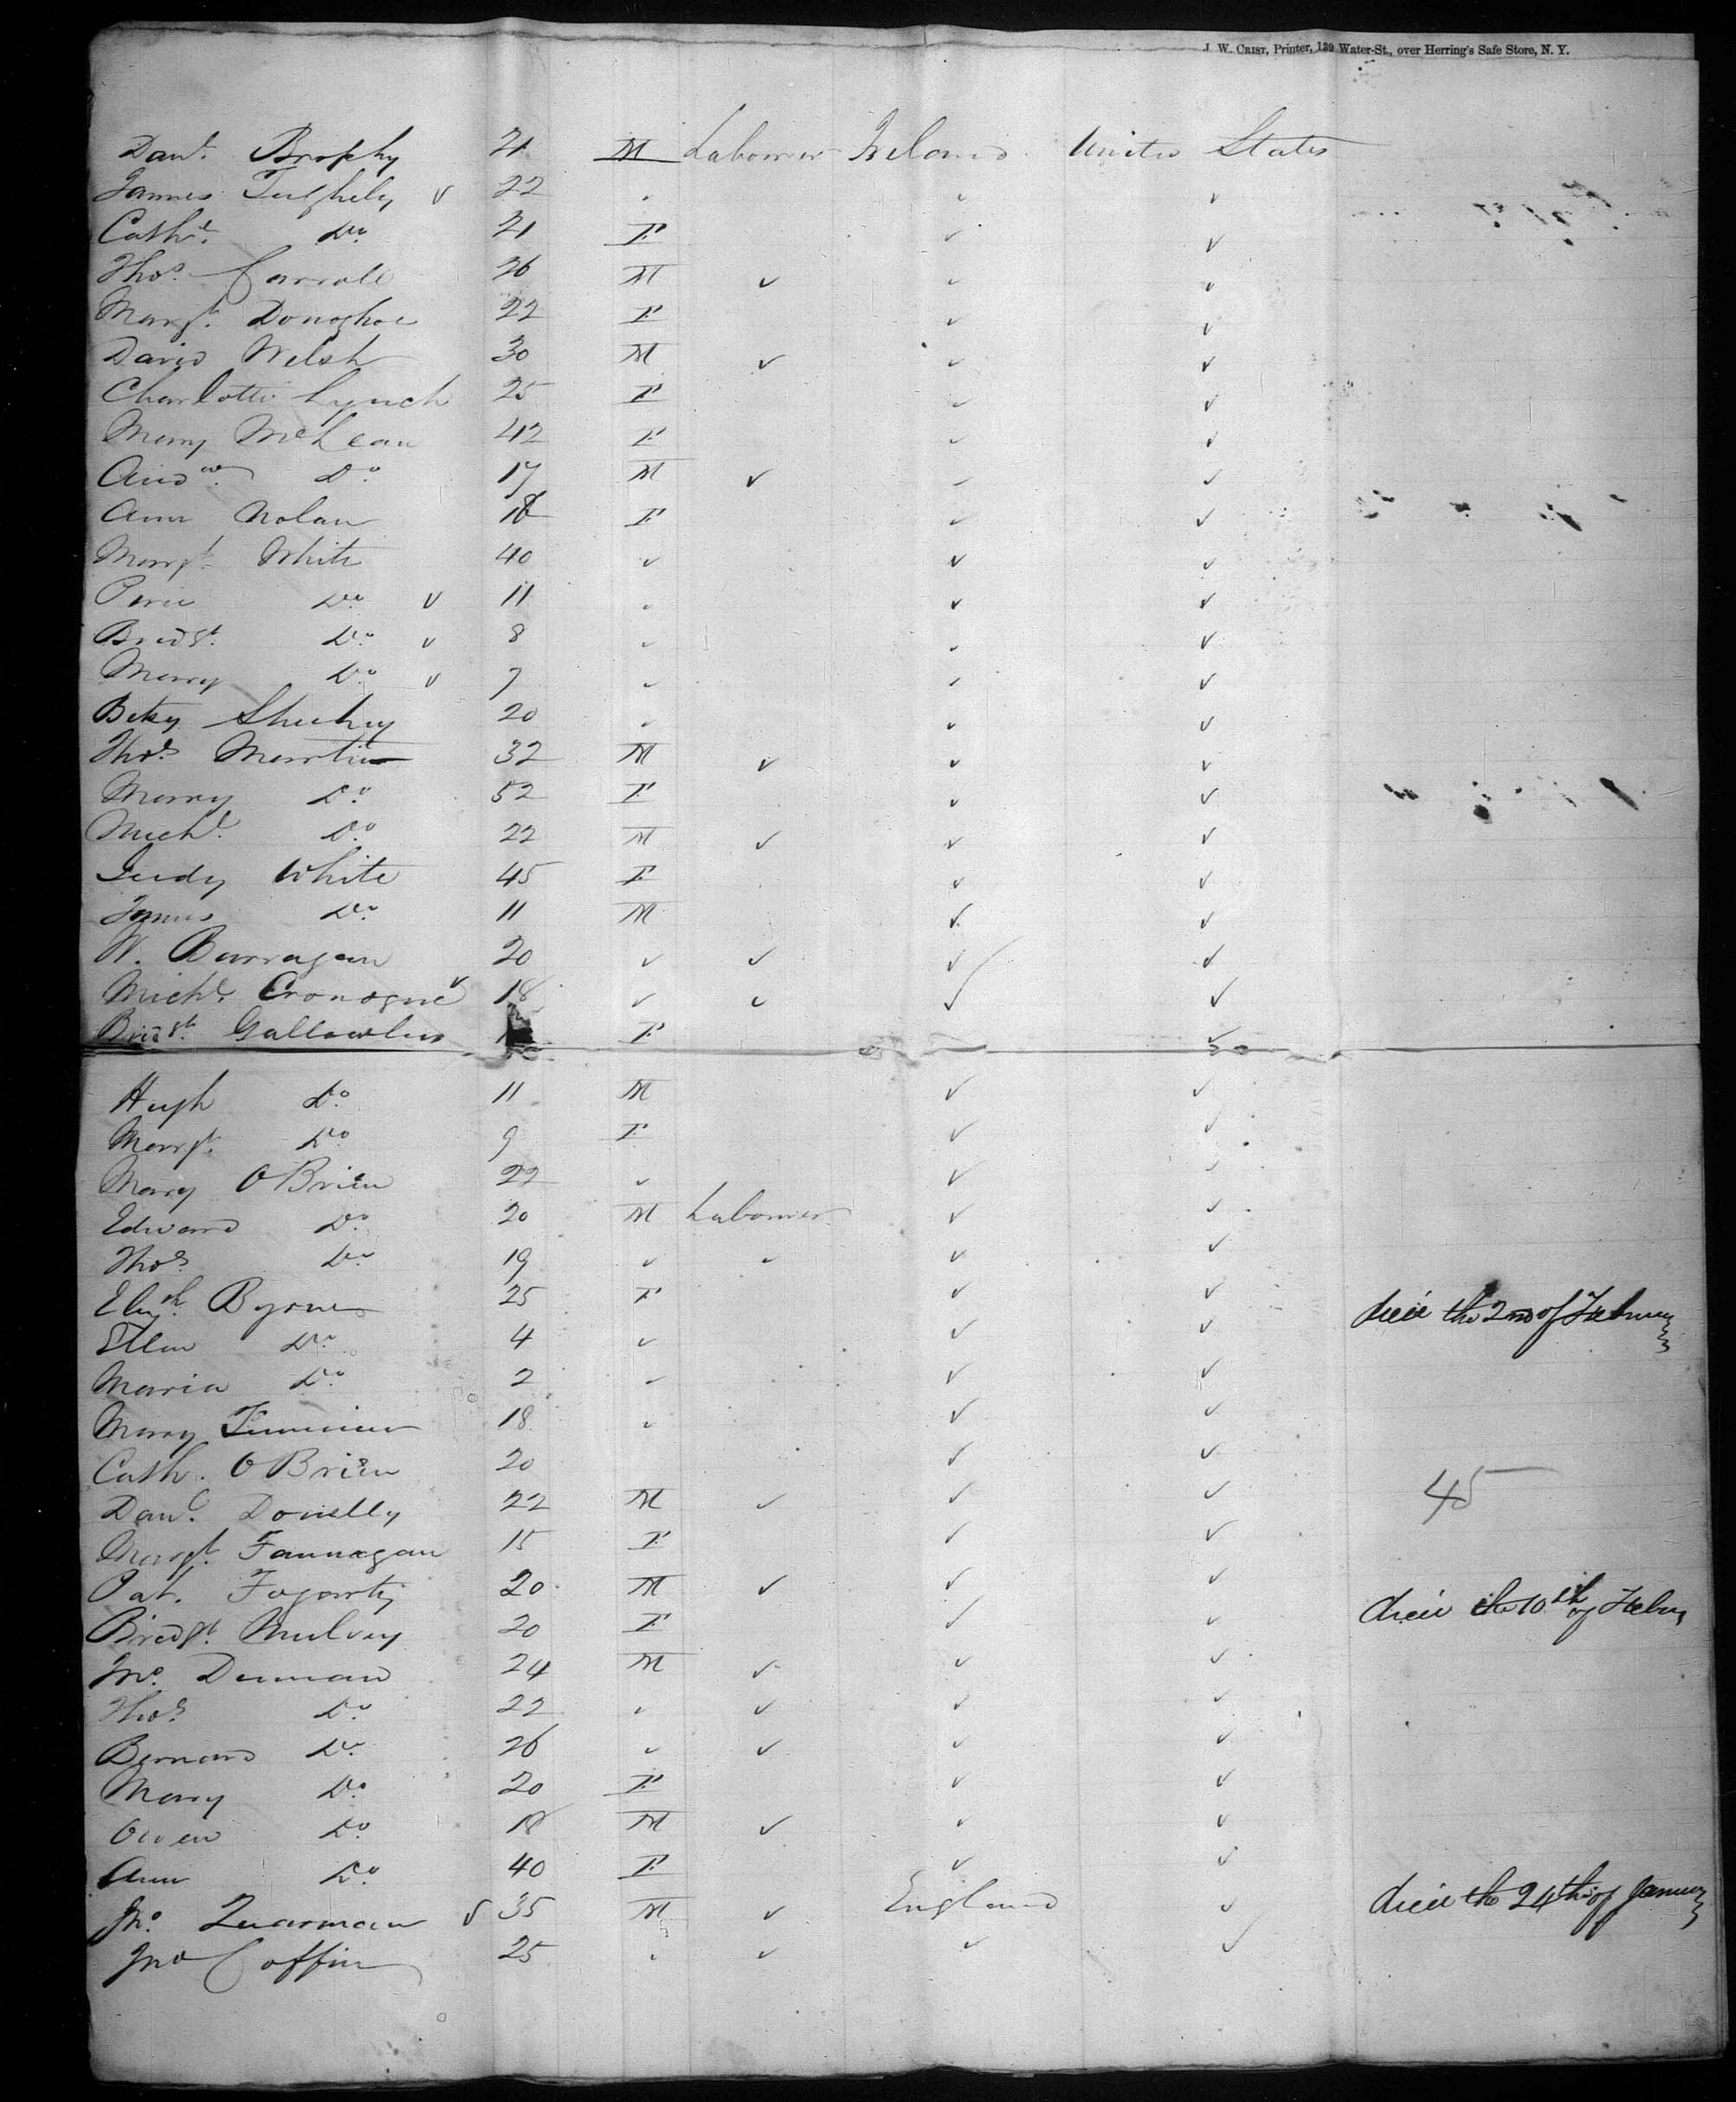 J. W. CRIST, Printer, 139 Water-St., over Herring's Safe Store, N. Y.
Danl. Brophy 21 M Labourer Ireland United States
James 22 ✓ ✓
Cathe. Do. 21 F ✓ ✓
Thos. Carroll 26 M ✓ ✓ ✓
Margt. Donoghoe 22 F ✓ ✓
David Welsh 30 M ✓ ✓ ✓
Charlotte Lynch 25 F ✓ ✓
Mary McLean 42 F ✓ ✓
Andw. Do. 17 M ✓ ✓ ✓
Ann Nolan 18 F ✓ ✓
Margt. White 40 ✓ ✓ ✓
Do. ✓ 11 ✓ ✓ ✓
Bridgt. Do. ✓ 8 ✓ ✓ ✓
Mary Do. ✓ 7 ✓ ✓ ✓
Betsy Sheehy 20 ✓ ✓ ✓
Thos. Martin 32 M ✓ ✓ ✓
Mary Do. 52 F ✓ ✓
Michl. Do. 22 M ✓ ✓ ✓
Judy White 45 F ✓ ✓
James Do. 11 M ✓ ✓
W. Barragan 20 ✓ ✓ ✓ ✓
Michl. Cronogue ✓ 18 ✓ ✓ ✓ ✓
Bridgt. F ✓
Hugh Do. 11 M ✓ ✓
Margt. Do. 9 F ✓ ✓
Mary O Brien 22 ✓ ✓ ✓
Edward Do. 20 M Labourer ✓ ✓
Thos. Do. 19 ✓ ✓ ✓ ✓
Elizh. Byrne 25 F ✓ ✓ died the 2nd of February
Ellen Do. 4 ✓ ✓ ✓
Maria Do. 2 ✓ ✓ ✓
Mary 18 ✓ ✓ ✓
Cath. O Brien 20 ✓ ✓
Danl. Donelly 22 M ✓ ✓ ✓ 45
Margt. Fannagan 15 F ✓ ✓
Pat. Fogarty 20 M ✓ ✓ ✓ died the 10th of Febuy
Bridgt. Mulvey 20 F ✓ ✓
Jno. 24 M ✓ ✓ ✓
Thos. Do. 22 ✓ ✓ ✓ ✓
Bernard Do. 26 ✓ ✓ ✓ ✓
Mary Do. 20 F ✓ ✓
Owen Do. 18 M ✓ ✓ ✓
Ann Do. 40 F ✓ ✓
Jno. Quarman ✓ 35 M ✓ England ✓ died the 24th of January
Jno Coffin 25 ✓ ✓ ✓ ✓